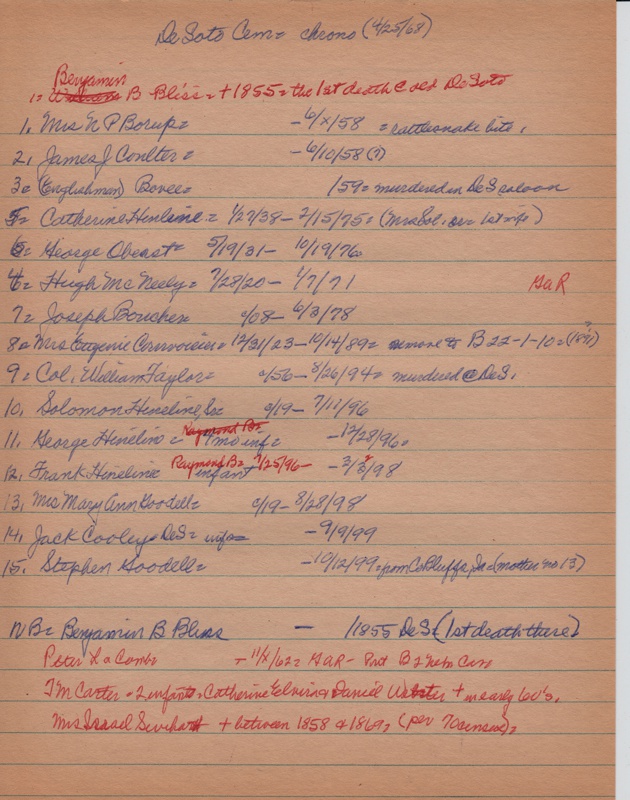 DeSoto Cem= chrono (4/25/68)
Benjamin
1= B Bliss = + 1855 = the 1st death @ old DeSoto
1, Mrs N P Borup= - 6/x/58 = rattlesnake bite,
2, James J Coulter = - 6/10/58 (?)
3= (Englishman) Bovee= /59= murdered in DeS saloon
5= Catherine Hinline = 1/27/38 - 2/15/75 = (Mrs Sol, sr= 1st wife)
6= George Obeast= 5/19/31 - 10/19/76
4= Hugh McNeely = 7/28/20 - 1/7/71 GaR
7= Joseph Boucher c/08 - 6/3/78
8= Mrs Eugenie = 12/31/23 - 10/14/89 = remove to B 22-1-10 = (1891)?
9= Col, William Taylor= c/56 - 8/26/94 = murdered @ DeS,
10, Solomon Hineline, Sr= c/19 - 7/11/96
11, George Hineline = Raymond B= 7mo inf = - 12/28/96=
12, Frank Hineline Raymond B= 7/25/96 - infant - 2/2/98
13, Mrs Mary Ann Goodell= c/19 - 8/28/98
14, Jack Cooley= DeS = wife= - 9/9/99
15, Stephen Goodell= - 10/12/99 = from CoBluffs, Ia= (mother no 13)
NB= Benjamin B Bliss - /1855 DeS= (1st death there)
Peter LaCombe - 11/x/62 = GaR - Pvt B 2 Nebr Cav
TM Carter = 2 infants, Catherine Elvira & Daniel Webster + in early 60's,
Mrs Israel Swihart + between 1858 & 1869, (per 70 census)=